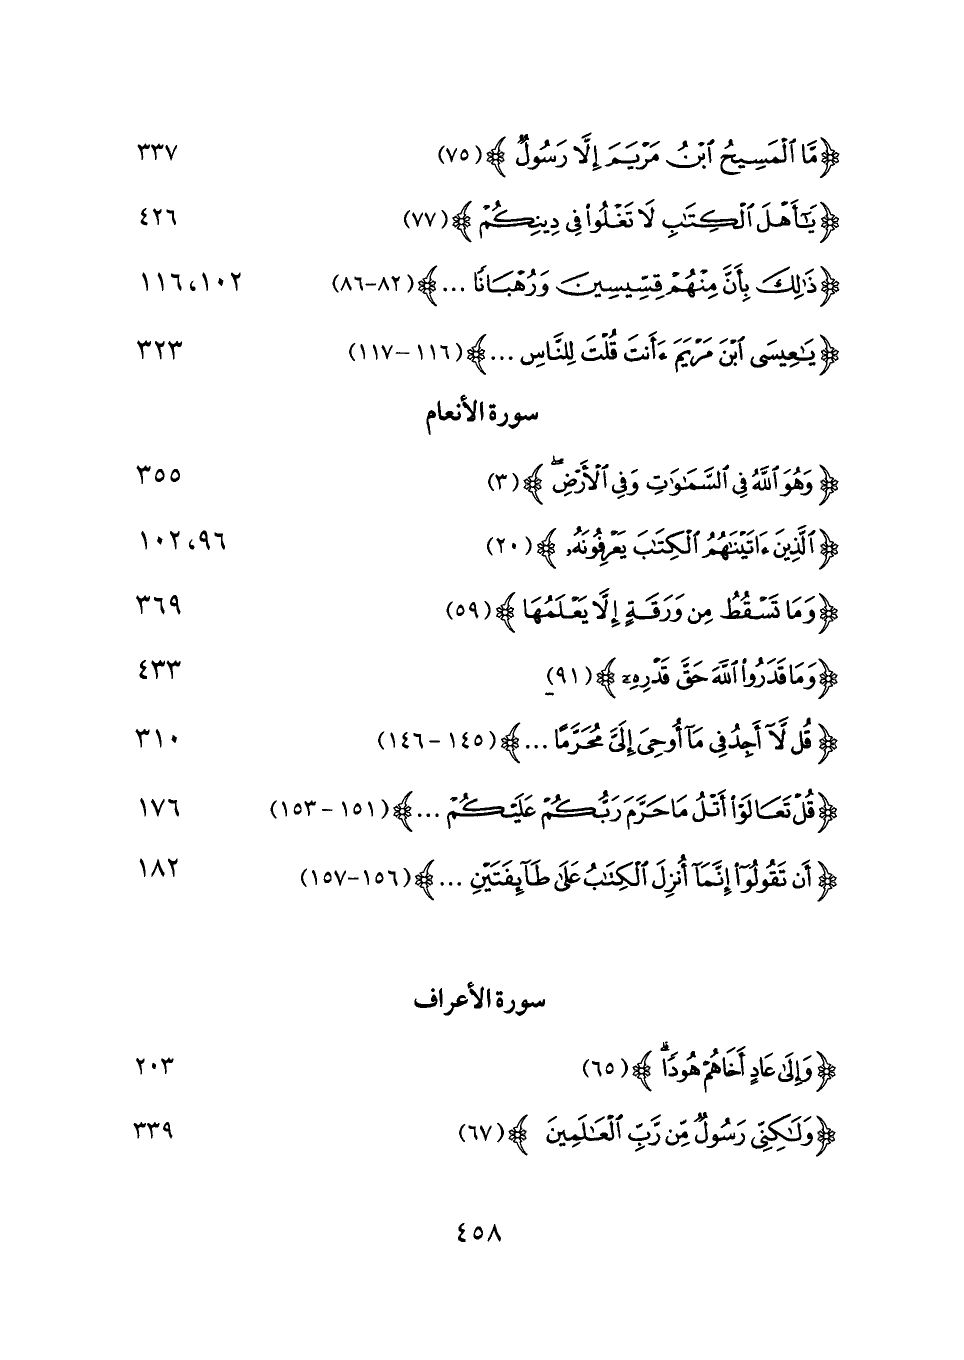 ﴿مَّا ٱلْمَسِيحُ ٱبْنُ مَرْيَمَ إِلَّا رَسُولٌ﴾ (٧٥) ٣٣٧
﴿يَٰٓأَهْلَ ٱلْكِتَٰبِ لَا تَغْلُوا۟ فِى دِينِكُمْ﴾ (٧٧) ٤٢٦
﴿ذَٰلِكَ بِأَنَّ مِنْهُمْ قِسِّيسِينَ وَرُهْبَانًا ...﴾ (٨٢-٨٦) ١٠٢، ١١٦
﴿يَٰعِيسَى ٱبْنَ مَرْيَمَ ءَأَنتَ قُلْتَ لِلنَّاسِ ...﴾ (١١٦-١١٧) ٣٢٣
سورة الأنعام
﴿وَهُوَ ٱللَّهُ فِى ٱلسَّمَٰوَٰتِ وَفِى ٱلْأَرْضِ ۖ﴾ (٣) ٣٥٥
﴿ٱلَّذِينَ ءَاتَيْنَٰهُمُ ٱلْكِتَٰبَ يَعْرِفُونَهُۥ﴾ (٢٠) ٩٦، ١٠٢
﴿وَمَا تَسْقُطُ مِن وَرَقَةٍ إِلَّا يَعْلَمُهَا﴾ (٥٩) ٣٦٩
﴿وَمَا قَدَرُوا۟ ٱللَّهَ حَقَّ قَدْرِهِۦٓ﴾ (٩١) ٤٣٣
﴿قُل لَّآ أَجِدُ فِى مَآ أُوحِىَ إِلَىَّ مُحَرَّمًا ...﴾ (١٤٥-١٤٦) ٣١٠
﴿قُلْ تَعَالَوْا۟ أَتْلُ مَا حَرَّمَ رَبُّكُمْ عَلَيْكُمْ ...﴾ (١٥١-١٥٣) ١٧٦
﴿أَن تَقُولُوٓا۟ إِنَّمَآ أُنزِلَ ٱلْكِتَٰبُ عَلَىٰ طَآئِفَتَيْنِ ...﴾ (١٥٦-١٥٧) ١٨٢
سورة الأعراف
﴿وَإِلَىٰ عَادٍ أَخَاهُمْ هُودًا ۗ﴾ (٦٥) ٢٠٣
﴿وَلَٰكِنِّى رَسُولٌ مِّن رَّبِّ ٱلْعَٰلَمِينَ﴾ (٦٧) ٣٣٩
٤٥٨